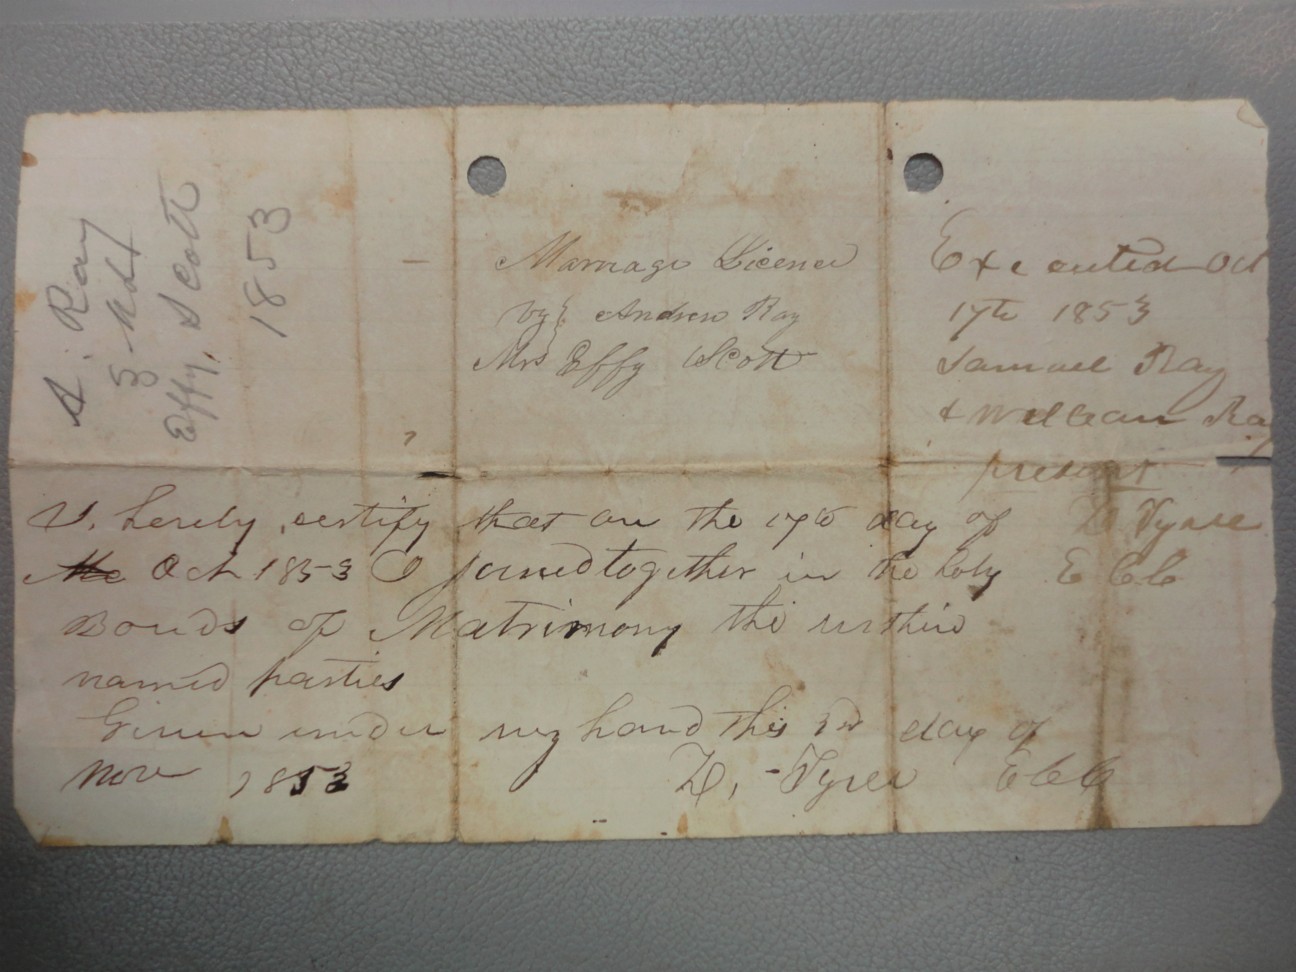 A. Ray
Effy, Scott
1853
Marriage Licence
vz Andrew Ray
Mrs Effy Scott
Executed Oct
17th 1853
Samuel Ray
& William Ray
present
D Tyree
E C C
I, hereby certify that on the 17th day of
Oct 1853 I joined together in the holy
Bonds of Matrimony the within
named parties
Given under my hand this 1st day of
Nov 1853 D, Tyree E C C